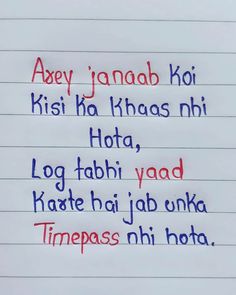 Arey janaab koi
kisi ka khaas nhi
Hota,
Log tabhi yaad
karte hai jab unka
Timepass nhi hota.